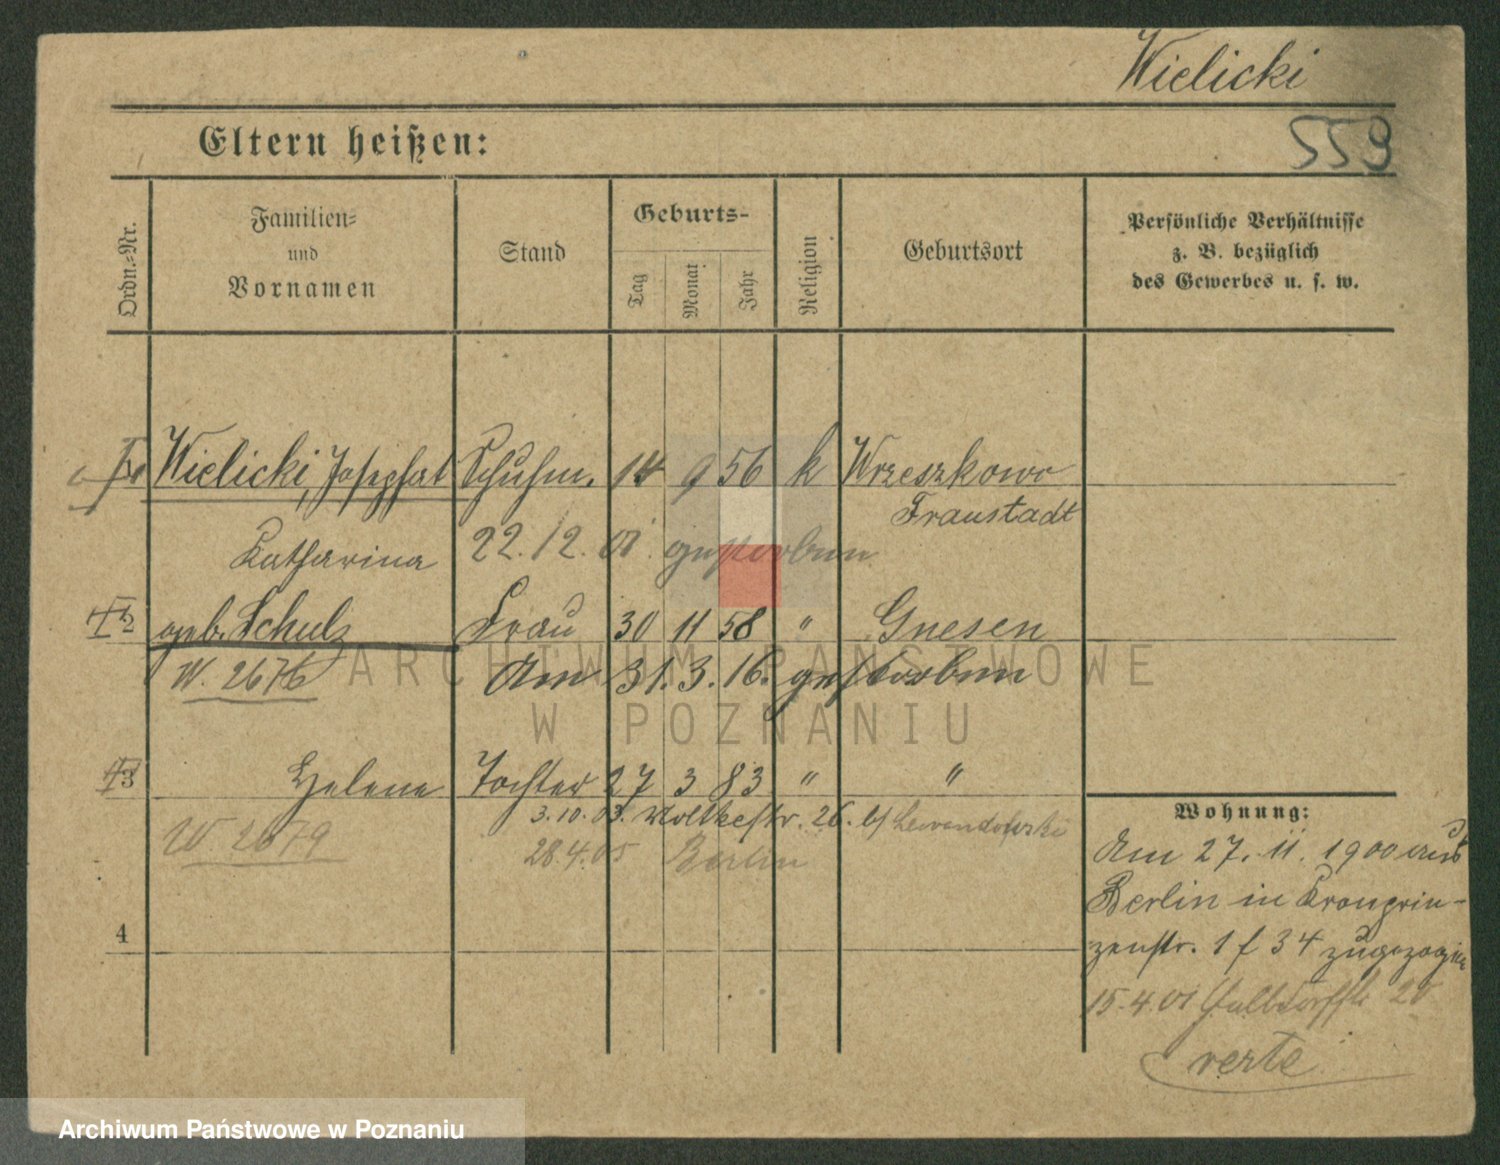 Wielicki
Eltern heißen:
559
Ordn.-Nr.
Familien-
und
Vornamen
Stand
Geburts-
Tag
Monat
Jahr
Religion
Geburtsort
Persönliche Verhältnisse
z. B. bezüglich
des Gewerbes u. s. w.
Wielicki, Josephat Schuhm. 14 9 56 k Wrzeszkowo
Fraustadt
Katharina 22.12.01. gestorben
2 geb. Schulz Frau 30 11 58 " Gnesen
W. 2676 Am 31.3.16. gestorben
3 Helene Tochter 27 3 83 " "
3.10.03. Moltkestr. 26. b/ Lewandowski
W. 2679 28.4.05 Berlin
4
Wohnung:
Am 27. 11. 1900 aus
Berlin in Kronprin-
zenstr. 1 f 34 zugezogen
15.4.01
verte
ARCHIWUM PAŃSTWOWE
W POZNANIU
Archiwum Państwowe w Poznaniu